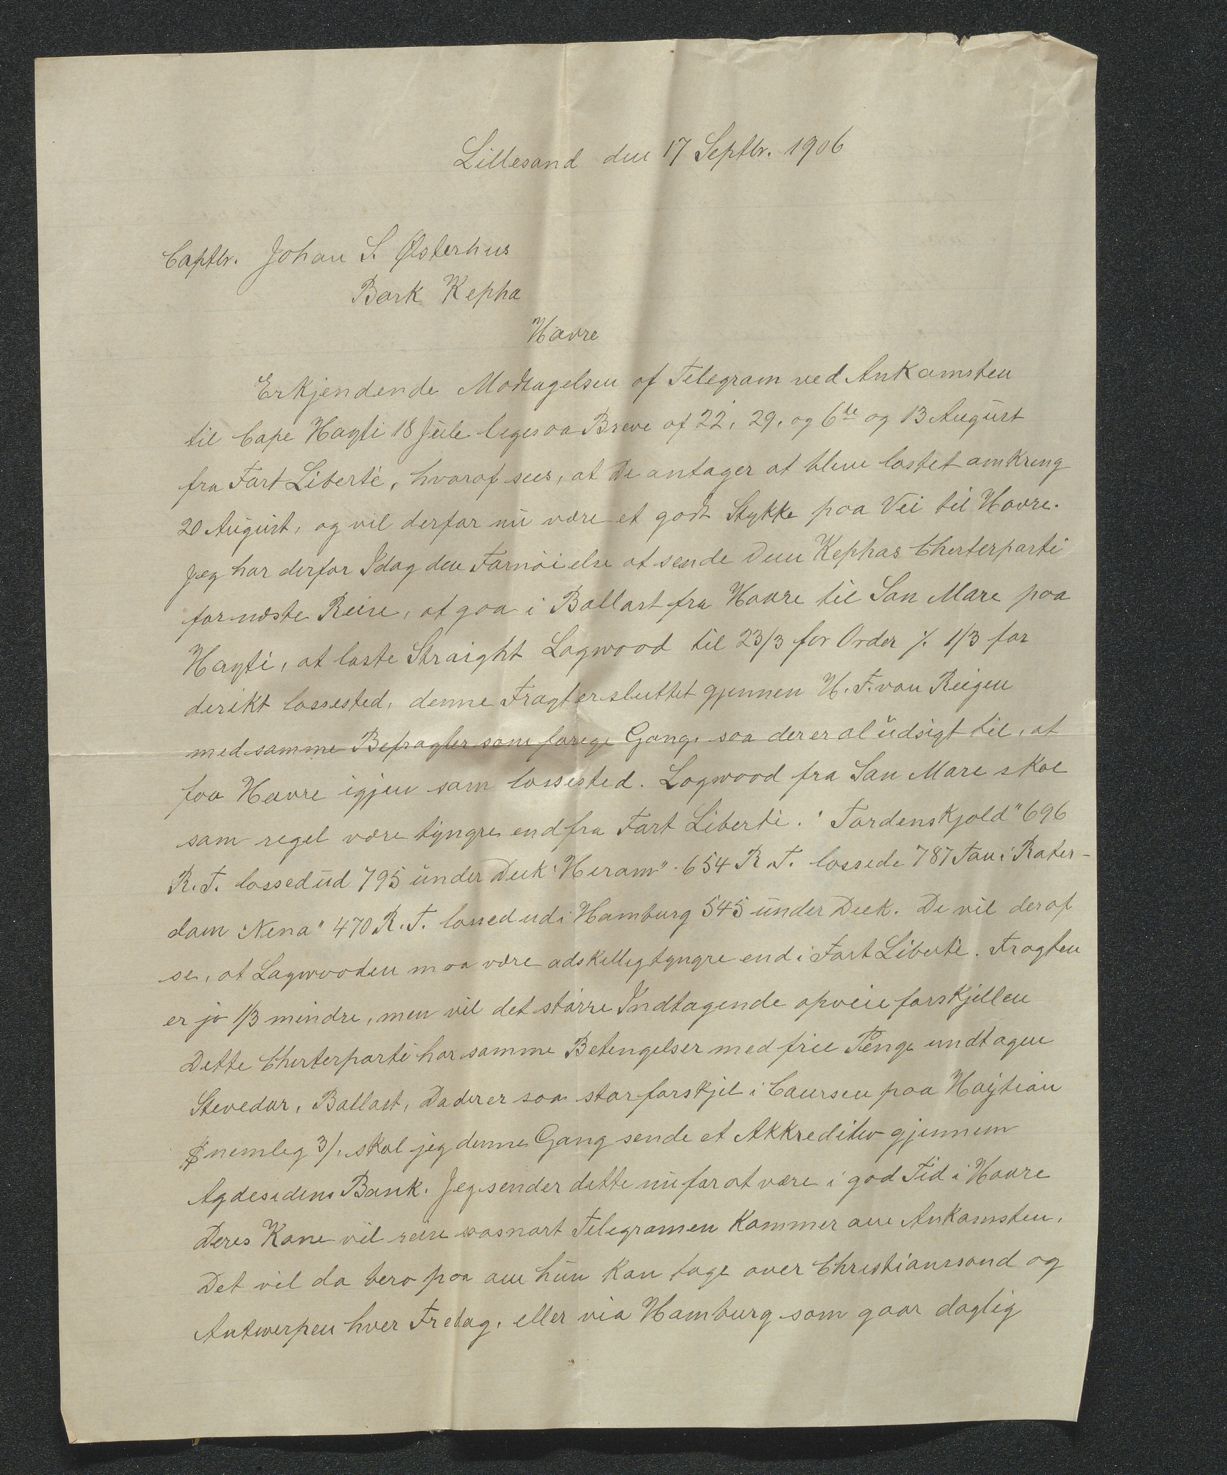 Lillesand den 17 Septbr. 1906
Captbr. Johan S. Østerhus
Bark Kepha
Havre
Erkjendende Modtagelsen af Telegram ved Ankomsten
til Cape Hayti 18 Juli ligesaa Breve af 22, 29, og 6te og 13 August
fra Fort Liberté, hvoraf sees, at De antager at blive lastet omkring
20 August, og vil derfor nu være et godt Stykke paa Vei til Havre.
Jeg har derfor Idag den Fornøielse at sende Dem Kephas Cherterparti
for næste Reise, at gaa i Ballast fra Havre til San Marc paa
Hayti, at laste Straight Logwood til 23/3 for Order % 1/3 for
dirikt lossested, denne Fragt er sluttet gjennem H. F. von Riegen
med samme Befragter som forige Gang, saa der er al udsigt til, at
faa Havre igjen som lossested. Logwood fra San Marc skal
som regel være tyngre end fra Fort Liberté. "Tordenskjold" 696
R. T. lossed ud 795 under Dæk "Heram" 654 R. T. lossede 787 Ton i Roter-
dam "Nena" 470 R. T. lossed ud i Hamburg 545 under Dæk. De vil deraf
se, at Logwooden maa være adskillig tyngre end i Fort Liberté. Fragten
er jo 1/3 mindre, men vil det større Indtagende opveie forskjellen
Dette Cherterparti har samme Betingelser med frie Penge undtagen
Stevedor, Ballast, Da der er saa stor forskjel i Coursen paa Haytian
$ nemlig 3/, skal jeg denne Gang sende et Akkreditiv gjennem
Agdesidens Bank. Jeg sender dette nu for at være i god Tid i Havre
Deres Kone vil reise saasnart Telegramen kommer om Ankomsten.
Det vil da bero paa om hun kan tage over Christianssand og
Antwerpen hver Fredag, eller via Hamburg som gaar daglig